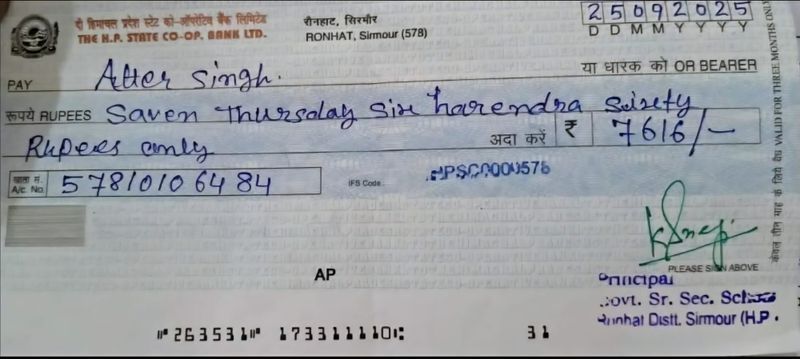 दी हिमाचल प्रदेश स्टेट को-ऑपरेटिव बैंक लिमिटेड
THE H.P. STATE CO-OP. BANK LTD.
रौनहाट, सिरमौर
RONHAT, Sirmour (578)
25092025
D D M M Y Y Y Y
PAY Atter Singh. या धारक को OR BEARER
रूपये RUPEES Saven Thursday Six harendra Sixety
Rupees only अदा करें ₹ 7616/-
खाता सं. A/c. No. 57810106484
IFS Code: HPSC0000578
केवल तीन माह के लिये वैध VALID FOR THREE MONTHS ONLY
PLEASE SIGN ABOVE
AP
Principal
Govt. Sr. Sec. School
Ronhat Distt. Sirmour (H.P.
⑈263531⑈ 173311110⑆ 31